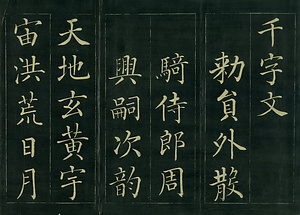 千字文
勑負外散
騎侍郎周
興嗣次韵
天地玄黃宇
宙洪荒日月